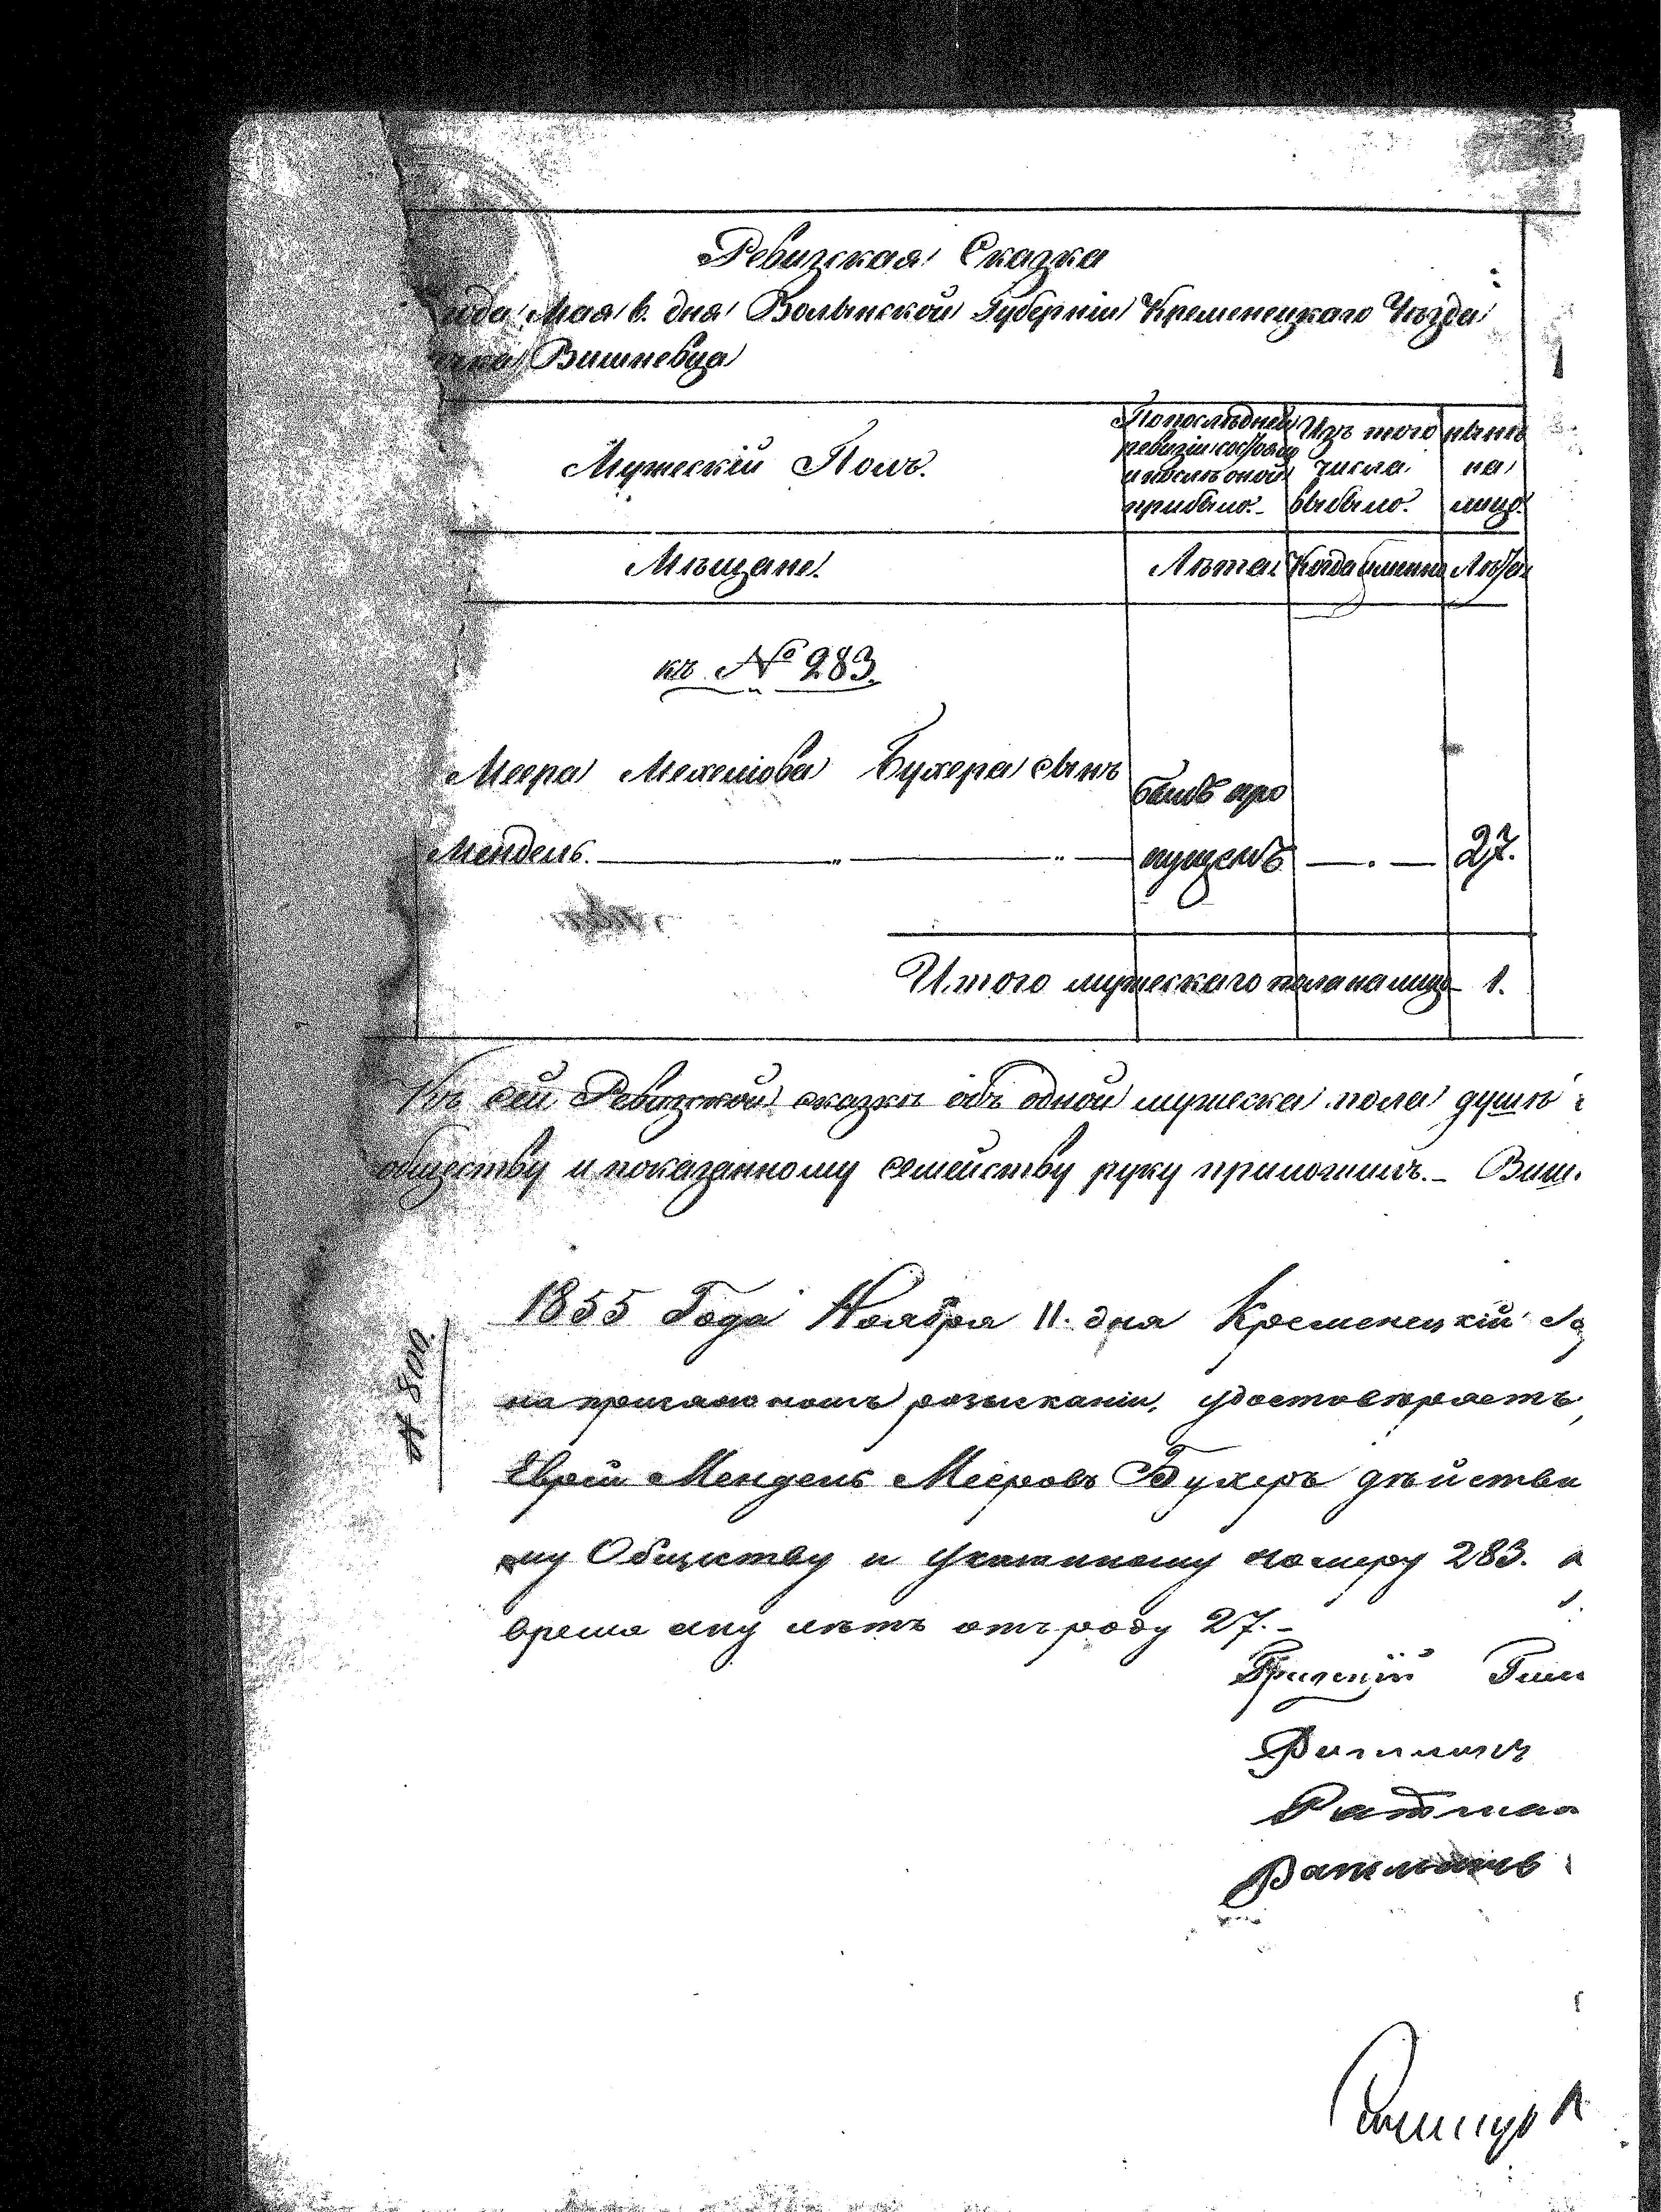 Ревизская Сказка
года Мая 6. дня Волынской Губерніи Кременецкаго Уѣзда
Вишневца
Мужескій Полъ.
По послѣдней ревизіи состояло и послѣ оной прибыло.
Изъ того числа выбыло.
нынѣ на лицо.
Мѣщане.
Лѣта.
Когда именно
Лѣта
къ № 283.
Меера Мехелiова Бухера сынъ
былъ про
Мендель.
пущенъ
27.
Итого мужескаго пола на лицо 1.
Къ сей Ревизской сказкѣ объ одной мужеска пола душѣ
обществу и показанному семейству руку приложилъ. Виш.
1855 Года Ноября 11. дня Кременецкій
№ 800.
розысканіи, удостовѣряетъ,
Еврей Мендель Мееровъ Бухеръ дѣйстви
му Обществу и номеру 283.
время ему лѣтъ отъ роду 27.
Ратман
Ратманъ